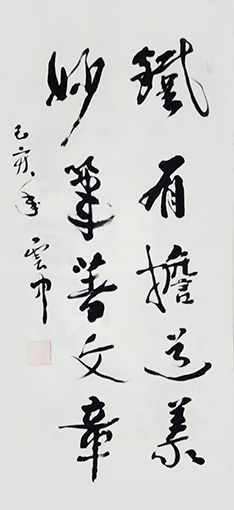 鐵肩擔道義
妙筆著文章
己亥年
雲中